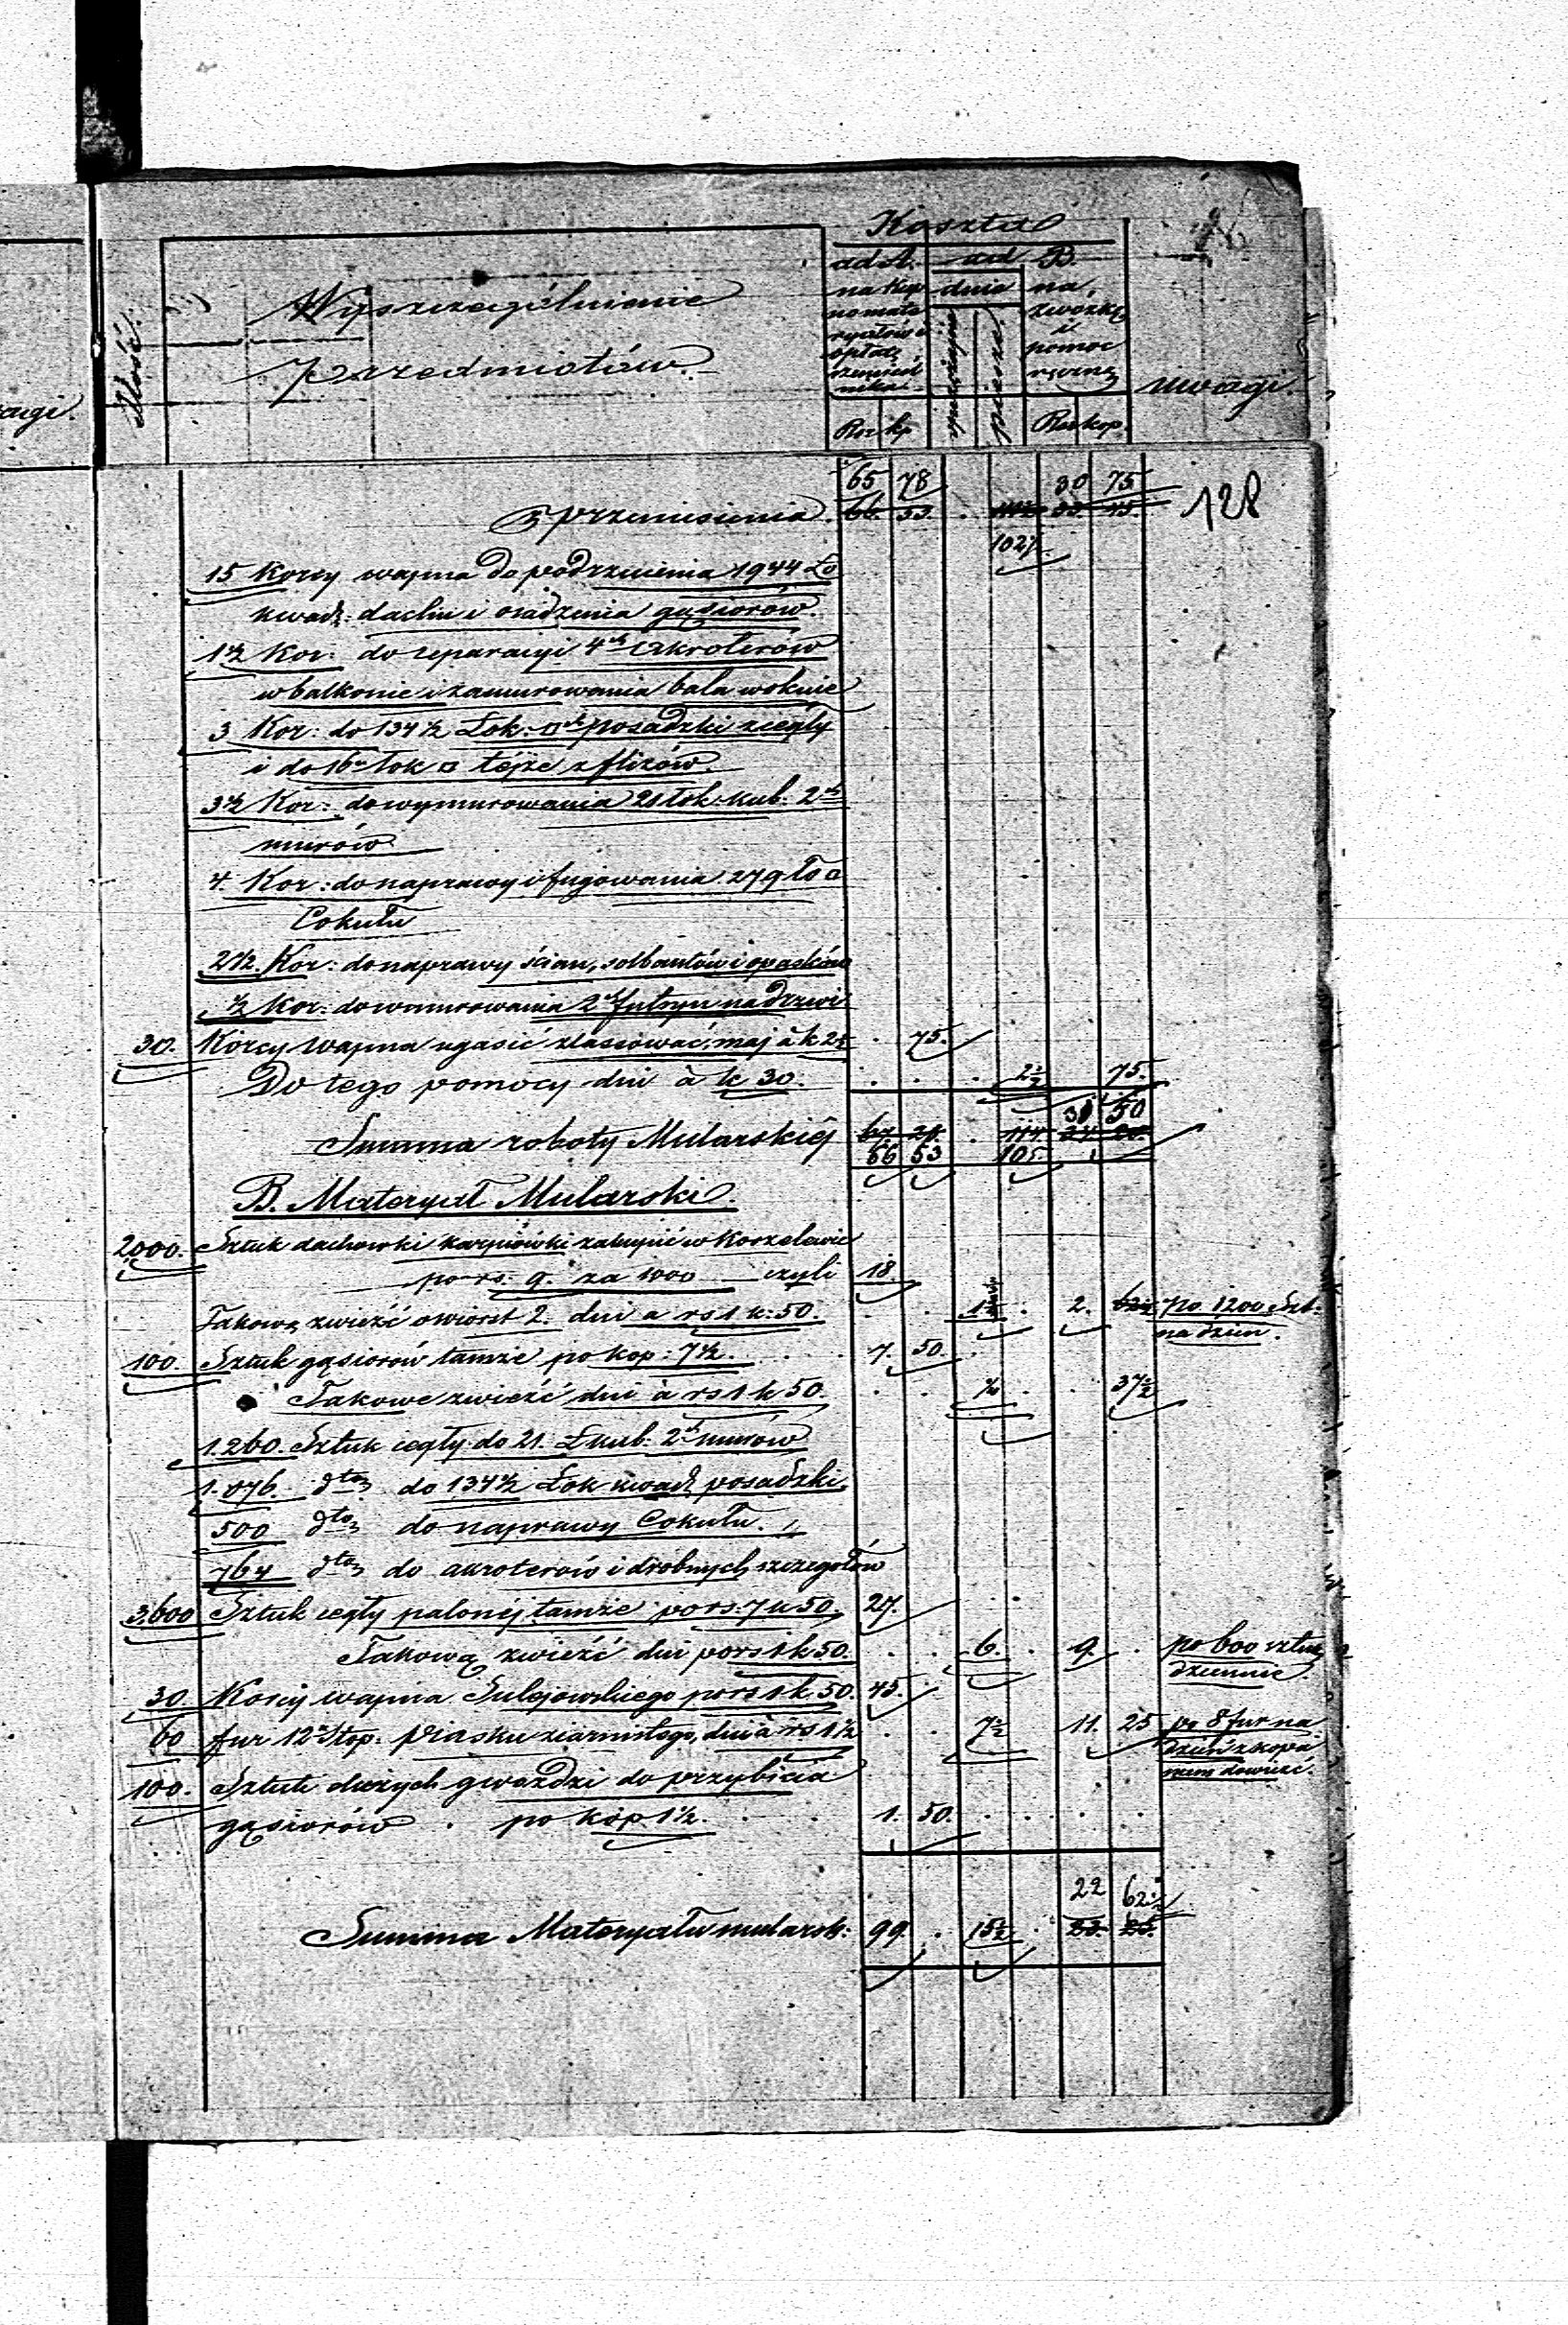 Koszta
ad A. ad B.
Ilość. Wyszczególnienie
przedmiotów.
na kup
no mate
ryałów i
opłatę
rzemieśl
nika
dnie
sprzężajne
piesze.
na
zwózkę
i
pomoc
ręczną
uwagi.
Rsr kp. Rsr kop.
128
65 78 30 75
z przeniesienia. 66. 53. 33 45.
102½
15 Korcy wapna do podrzucenia 1944 Ło
kwad: dachu i osadzenia gąsiorów.
1½ Kor: do reparacyi 4ch Akroterów
w balkonie i zamurowania bala w oknie
3 Kor: do 134½ Łok: □ch posadzki z cegły
i do 16u łok □ tejże z flizów.
3½ Kor: do wymurowania 21 łok: kub: 2ch
murów
4. Kor: do naprawy i fugowania 279 ło □
Cokułu
2½. Kor: do naprawy ścian, solbantów i opasków
½ Kor: do wmurowania 2ch futryn na drzwi
30. Korcy wapna ugasić zlasować, maj à k 2½ . 75.
Do tego pomocy dni à k 30. . . . 2½ 75.
31 50
Summa roboty Mularskiéj 67. 28. . 114.
66 53 105.
B. Materyał Mularski.
2000. Sztuk dachówki karpiówki zakupić w Koszelewie
po rs: 9. za 1000 czyli 18
Takową zwieźć o wiorst 2. dni a rs 1 k: 50. 2. po 1200 Szt:
na dzień.
100. Sztuk gąsiorów tamże po kop: 7½. 7. 50.
Takowe zwieźć dni à rs 1 k 50. ¼ 37½
1.260. Sztuk cegły do 21. Ł kub: 2ch murów
1.076. dto do 134½ Łok kwad posadzki
500 dto do naprawy Cokułu.
764 dto do akroterów i drobnych szczegółów
3,600 Sztuk cegły palonéj tamże po rs: 7 k 50. 27.
Takową zwieźć dni po rs 1 k 50. . . 6. . 9. . po 600 sztuk
dziennie
30. Korcy wapna Sulejowskiego po rs 1 k. 50. 45.
60 fur 12u Stop: piasku ziarnistego, dni à rs 1½ . . 7½ 11. 25 po 8 fur na
dzień z kopa
niem dowieźć.
100. Sztuk dużych gwoździ do przybicia
gąsiorów . po kop 1½. 1. 50. . . . .
22 62½
Summa Materyału mularsk: 99. . 15½ . 23. 25.